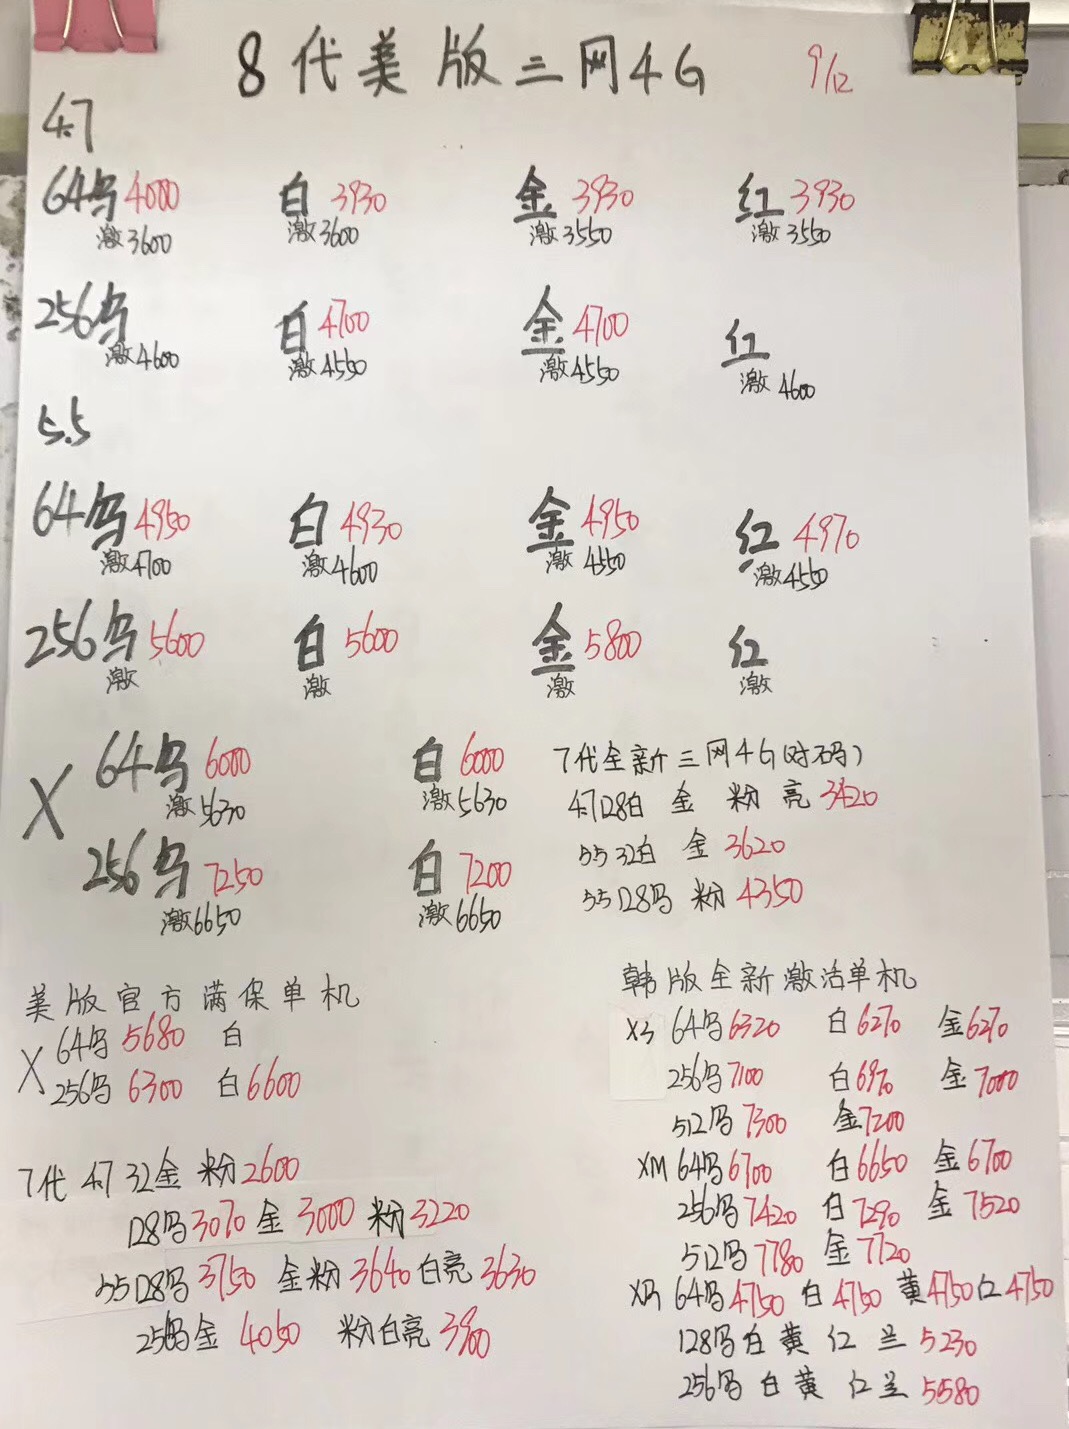 8代美版三网4G 9/12
4.7
64乌4000 白3930 金3930 红3930
激3600 激3600 激3550 激3550
256乌 白4700 金4700 红
激4600 激4550 激4550 激4600
5.5
64乌4950 白4930 金4950 红4970
激4700 激4600 激4550 激4550
256乌5600 白5600 金5800 红
激 激 激 激
X 64乌6000 白6000
激5630 激5630
256乌7250 白7200
激6650 激6650
7代全新三网4G(对码)
4.7 128白 金 粉 亮 3420
55 32白 金 3620
55 128乌 粉 4350
美版官方满保单机
X 64乌 5680 白
256乌 6300 白6600
7代 4.7 32金 粉2600
128乌3070 金 3000 粉3220
55 128乌3750 金粉3640 白亮3630
256乌金 4050 粉白亮3900
韩版全新激活单机
XS 64乌6320 白6270 金6270
256乌7100 白6970 金7000
512乌7300 金7200
XM 64乌6700 白6650 金6700
256乌7420 白7290 金7520
512乌7780 金7720
XR 64乌4750 白4750 黄4750 红4750
128乌白黄 红 兰 5230
256乌 白黄 红兰 5580